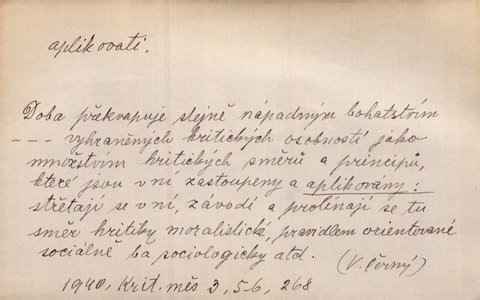 aplikovati.
Doba překvapuje stejně nápadným bohatstvím
--- vyhraněných kritických osobností jako
množstvím kritických směrů a principů,
které jsou v ní zastoupeny a aplikovány:
střetají se v ní, závodí a prolínají se tu
směr kritiky moralistické, pravidlem orientované
sociálně ba sociologicky atd. (V. Černý)
1940, Krit. měs 3, 5-6, 268